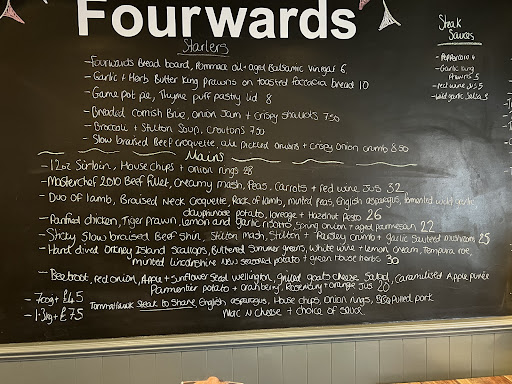 Fourwards
Starters
- Fourwards Bread board, Pommace oil + aged Balsamic Vinegar 6
- Garlic + Herb Butter King Prawns on toasted foccacia bread 10
- Game pot pie, Thyme puff pastry lid 8
- Breaded Cornish Brie, onion Jam + Crispy shallots 7 50
- Broccoli + Stilton Soup, Croutons 7 50
- Slow braised Beef Croquette, ale Pickled onions + crispy onion crumb 8 50
Mains
- 12oz Sirloin, House chips + onion rings 28
- Masterchef 2010 Beef fillet, Creamy mash, Peas, Carrots + red wine Jus 32
- Duo of lamb, Braised Neck Croquette, Rack of lamb, minted peas, English asparagus, fermented wild garlic
dauphinoise potato, lovage + Hazelnut pesto 26
- Panfried chicken, Tiger prawn, lemon and garlic risotto, Spring onion + aged parmesan 22
- Sticky Slow braised Beef shin, Stilton mash, Stilton + Parsley crumb + garlic Sauteed mushrooms 25
- Hand dived Orkney Island Scallops, Buttered Summer greens, white wine + lemon Cream, Tempura roe,
minted Lincolnshire new seasoned potato + green sauce herbs 30
- Beetroot, red onion, Apple + Sunflower Seed wellington, grilled goats cheese, Salad, Caramelised Apple puree
Parmentier potato + cranberry, Rosemary + orange Jus 20
- 700g + £45
Tommahawk Steak to Share, English asparagus, House chips, onion rings, BBQ Pulled pork
- 1.3kg + £75
Mac N cheese + choice of sauce
Steak
Sauces
- Peppercorn 4
- Garlic King
Prawns 5
- red wine Jus 5
- wild garlic Salsa 5